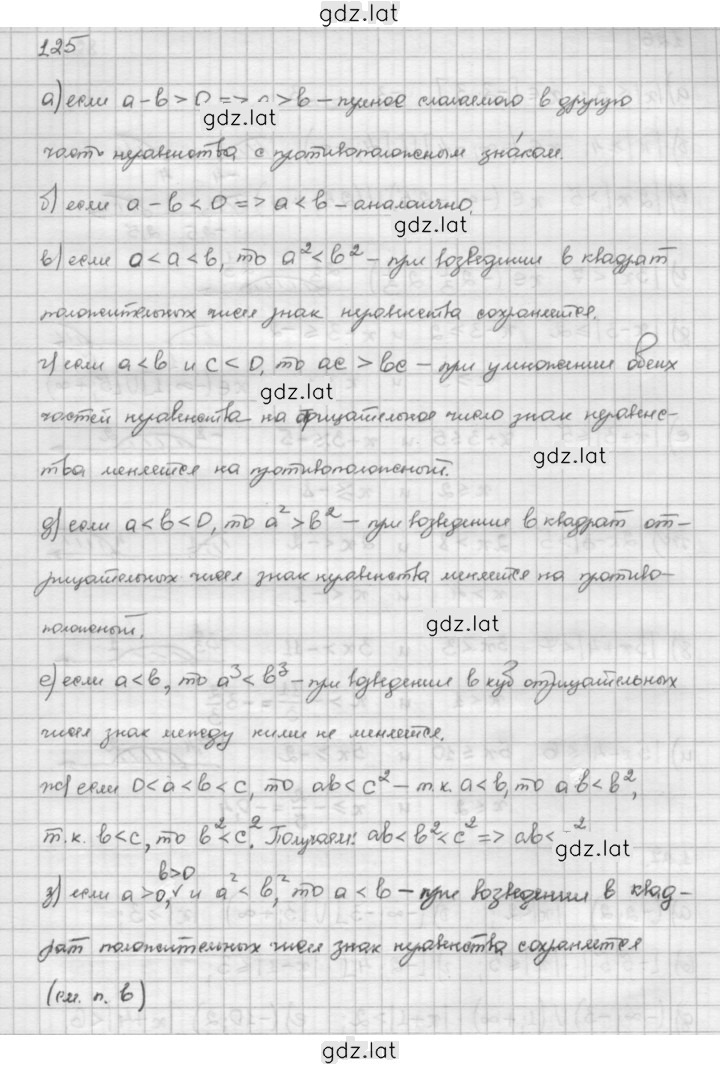 gdz.lat
125
а) если a-b>0 => a>b - перенос слагаемого в другую
gdz.lat
часть неравенства с противоположным знаком.
б) если a-b<0 => a<b - аналогично.
gdz.lat
в) если 0<a<b, то a²<b² - при возведении в квадрат
положительных чисел знак неравенства сохраняется.
г) если a<b и c<0, то ac>bc - при умножении обеих
gdz.lat
частей неравенства на отрицательное число знак неравенс-
gdz.lat
тва меняется на противоположный.
д) если a<b<0, то a²>b² - при возведении в квадрат от-
рицательных чисел знак неравенства меняется на противо-
положный.
gdz.lat
е) если a<b, то a³<b³ - при возведении в куб отрицательных
чисел знак между ними не меняется.
ж) если 0<a<b<c, то ab<c² - т.к. a<b, то ab<b²,
т.к. b<c, то b²<c². Получаем: ab<b²<c² => ab< ²
gdz.lat
b>0
з) если a>0,√ и a²<b², то a<b - при возведении в квад-
рат положительных чисел знак неравенства сохраняется
(см. п. в)
gdz.lat